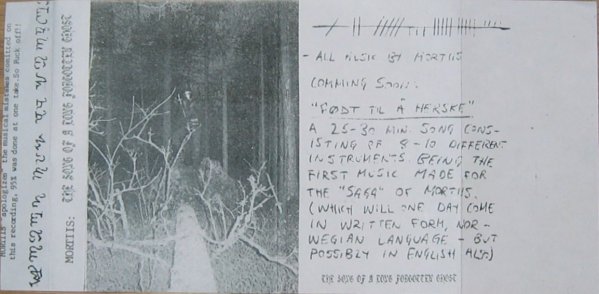 MORTIIS "apologizes" the musical mistakes comitted on
this recording. 95% was done at one take.So Fuck off!!
MORTIIS: THE SONG OF A LONG FORGOTTEN GHOST
- ALL MUSIC BY MORTIIS
COMMING SOON:
"FØDT TIL Å HERSKE"
A 25-30 MIN. SONG CONS-
ISTING OF 8-10 DIFFERENT
INSTRUMENTS. BEING THE
FIRST MUSIC MADE FOR
THE "SAGA" OF MORTIIS.
(WHICH WILL ONE DAY COME
IN WRITTEN FORM, NOR-
WEGIAN LANGUAGE - BUT
POSSIBLY IN ENGLISH ALSO)
THE SONG OF A LONG FORGOTTEN GHOST